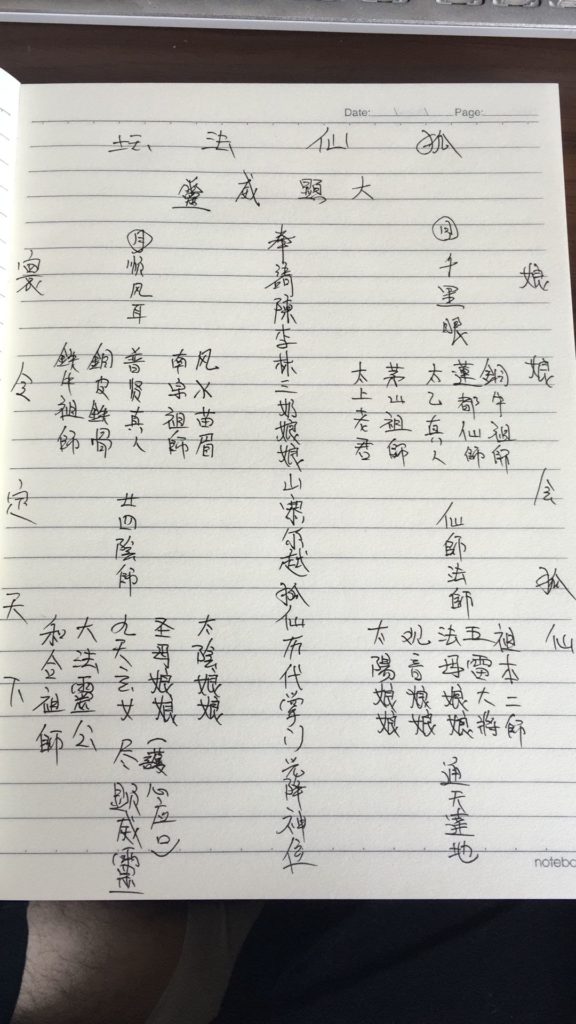 Date: Page:
狐仙法坛
大顯威靈
娘娘令狐仙
日千里眼
銅牛祖師
蓮都仙師
太乙真人
茅山祖師
太上老君
仙師法師
祖本二師
五雷大將
法母娘娘
观音娘娘
太陽娘娘
通天達地
奉請陳李林三奶娘娘山宗尔越狐仙历代掌门兴降神位
月順风耳
风火苗眉
南宗祖師
普贤真人
銅皮鉄骨
鉄牛祖師
廿四陰師
太陰娘娘
圣母娘娘
九天玄女
大法靈公
和合祖師
(護心应口)
尽顯威靈
令定天下
notebo